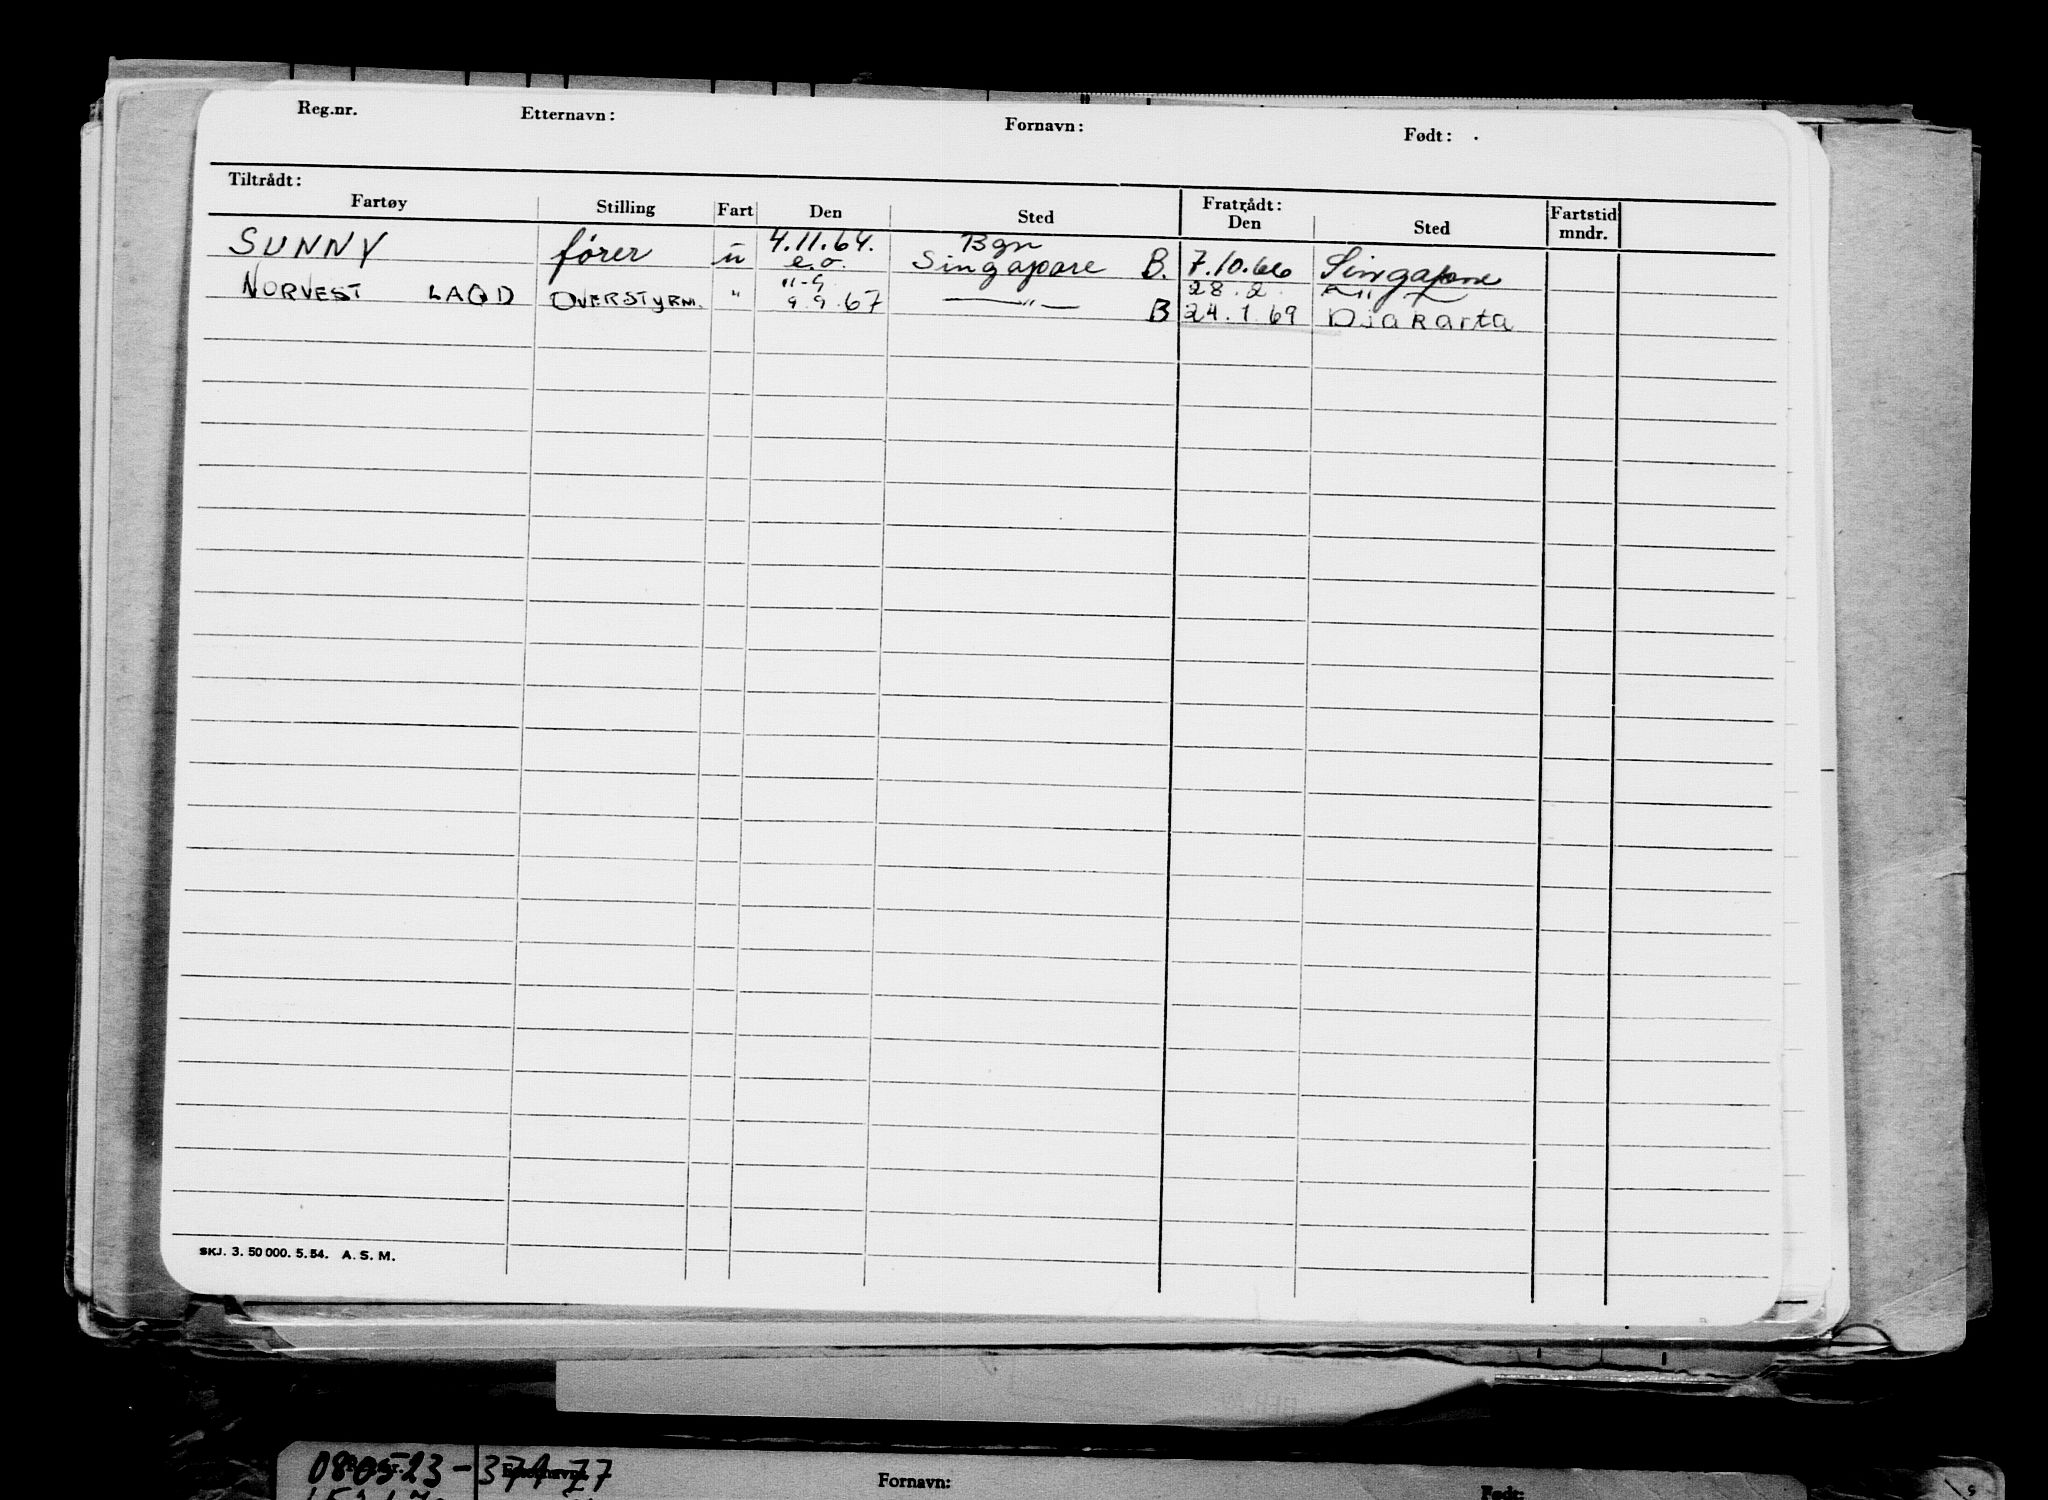 Reg.nr. Etternavn: Fornavn: Født:
Tiltrådt: Fratrådt:
Fartøy Stilling Fart Den Sted Den Sted Fartstid mndr.
SUNNY fører u 4.11.64. Bgn 7.10.66 Singapore
e.o. Singapore B.
11-9 28.2 —"—
NORVEST LAQD OVERSTYRM. " 9.9.67 —"— B 24.1.69 Djakarta
SKJ. 3. 50 000. 5. 54. A. S. M.
080523-
Fornavn: Født: